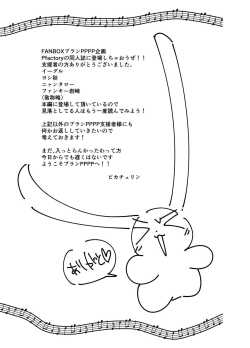 FANBOXプランPPPP企画
Pfactoryの同人誌に登場しちゃおうぜ!!
支援者の方ありがとうございました。
イーグル
ヨシ朝
ニャンタロー
ファンキー剣崎
本編に登場して頂いているので
見落としてる人はもう一度読んでみよう!
上記以外のプランPPPP支援者様にも
何かお返ししていきたいので
考えておきます!
まだ、入っとらんかったわって方
今日からでも遅くはないです
ようこそプランPPPPへ!!
ピカチェリン
ありがと♡